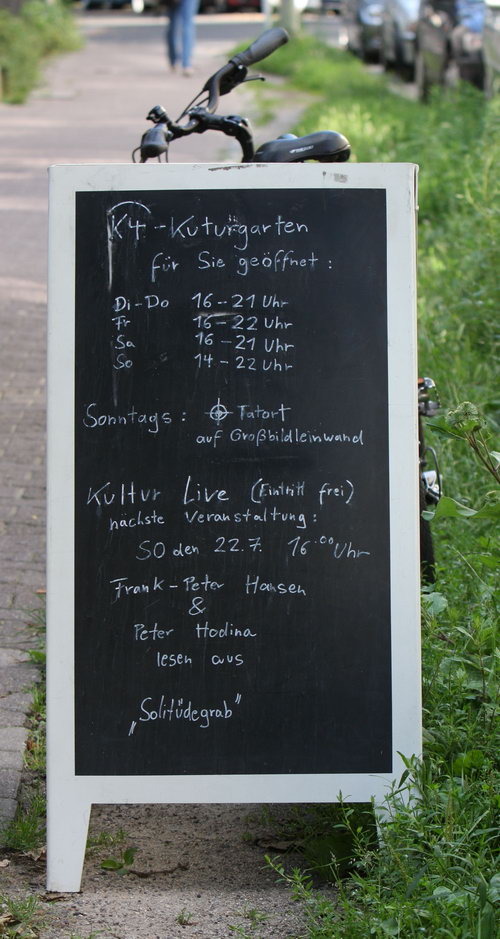 K4-Kuturgarten
für Sie geöffnet:
Di-Do 16-21 Uhr
Fr 16-22 Uhr
Sa 16-21 Uhr
So 14-22 Uhr
Sonntags: Tatort
auf Großbildleinwand
Kultur Live (Eintritt frei)
nächste Veranstaltung:
SO den 22.7. 16.00 Uhr
Frank-Peter Hansen
&
Peter Hodina
lesen aus
„Solitüdegrab"